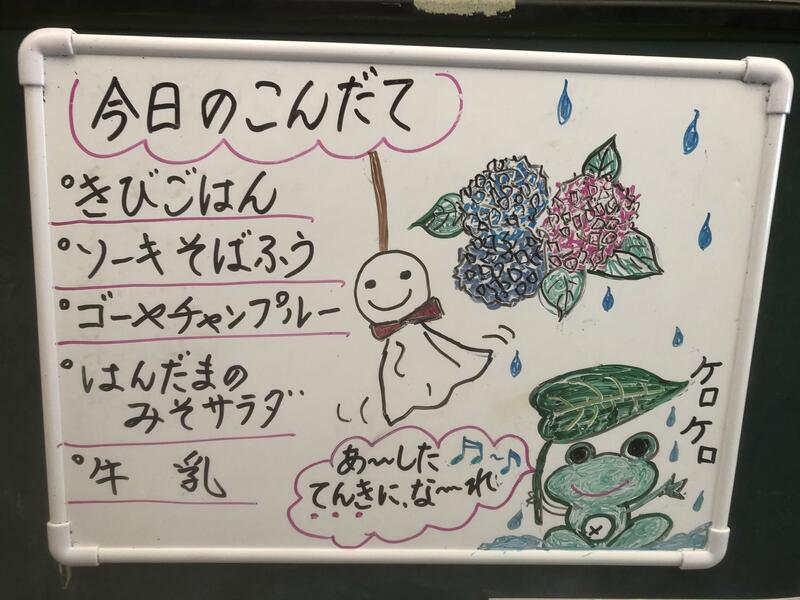 今日のこんだて
°きびごはん
°ソーキそばふう
°ゴーヤチャンプルー
°はんだまの
みそサラダ
°牛 乳
あ〜した♫〜♪
てんきに、な〜れ
ケロケロ